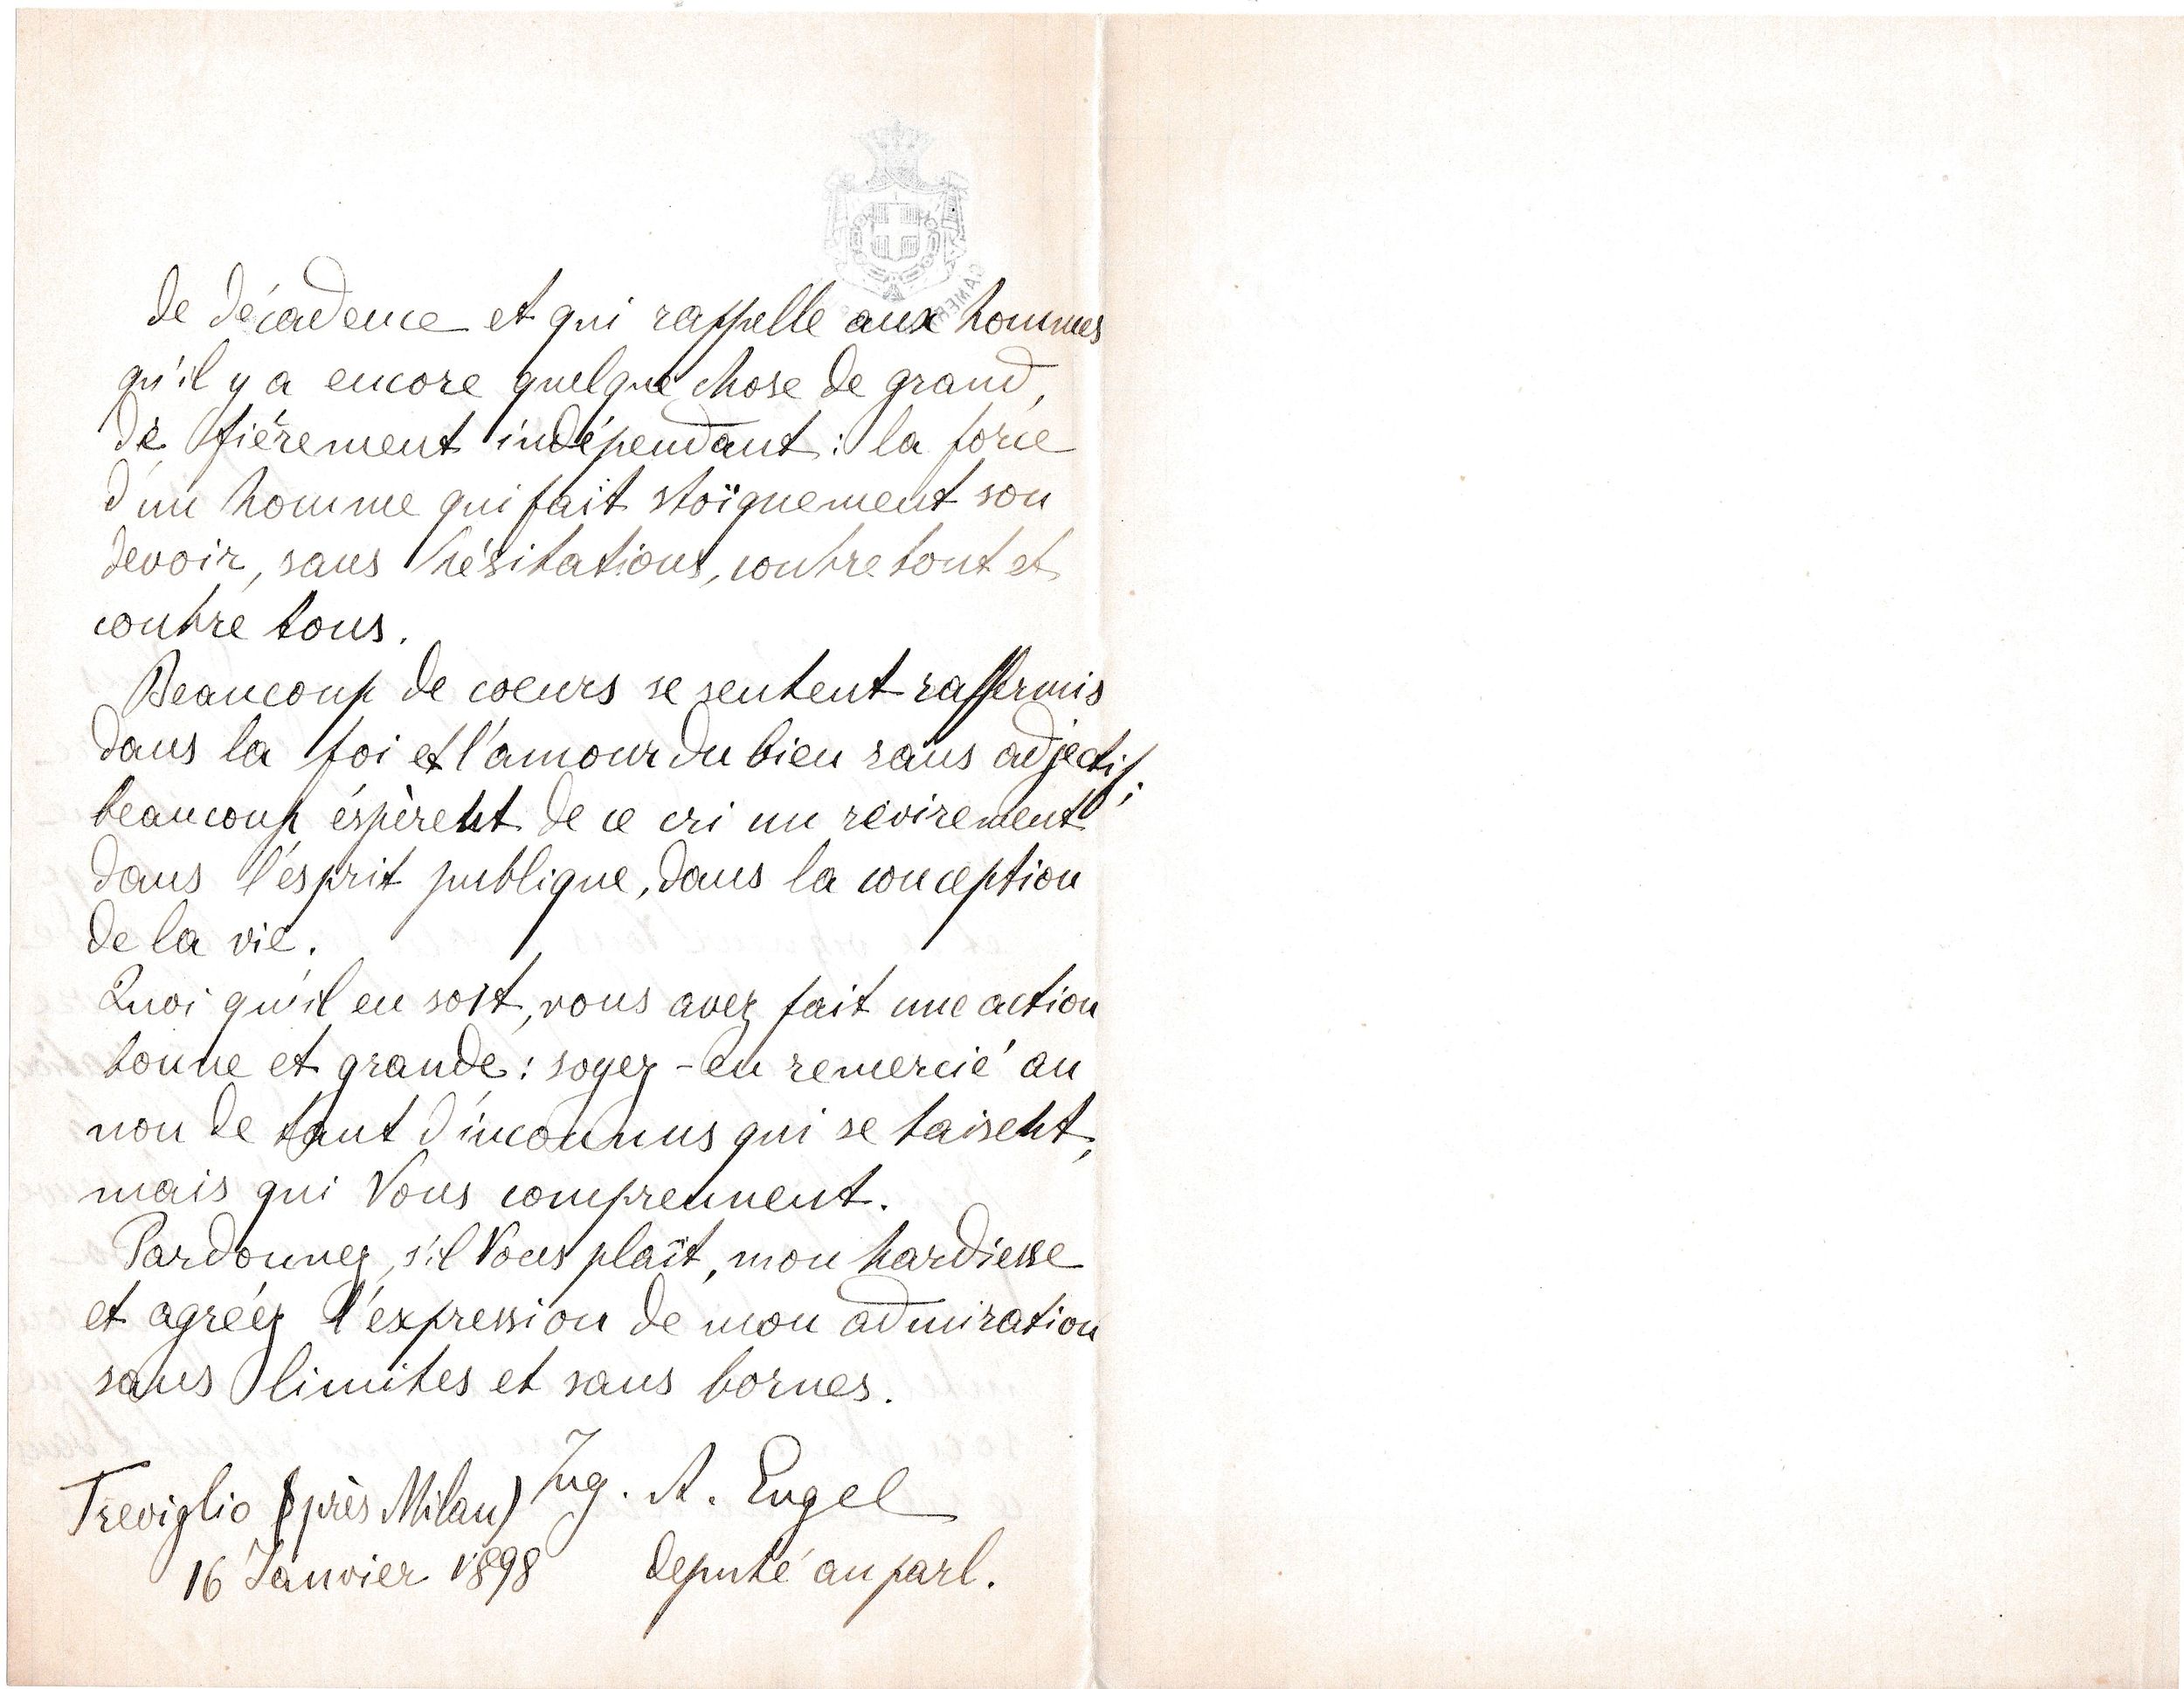 de décadence et qui rappelle aux hommes
qu'il y a encore quelque chose de grand,
de fièrement indépendant : la force
d'un homme qui fait stoïquement son
devoir, sans hésitations, contre tout et
contre tous.
Beaucoup de coeurs se sentent raffermis
dans la foi et l'amour du bien sans adjectif;
beaucoup éspèrent de ce cri un revirement
dans l'ésprit publique, dans la conception
de la vie.
Quoi qu'il en soit, vous avez fait une action
bonne et grande : soyez-en remercié au
non de tant d'inconnus qui se taisent,
mais qui Vous comprennent.
Pardonnez, s'il Vous plaît, mon hardiesse
et agréez l'expression de mon admiration
sans limites et sans bornes.
Ing. A. Engel
Treviglio (près Milan)
16 Janvier 1898 deputé au parl.